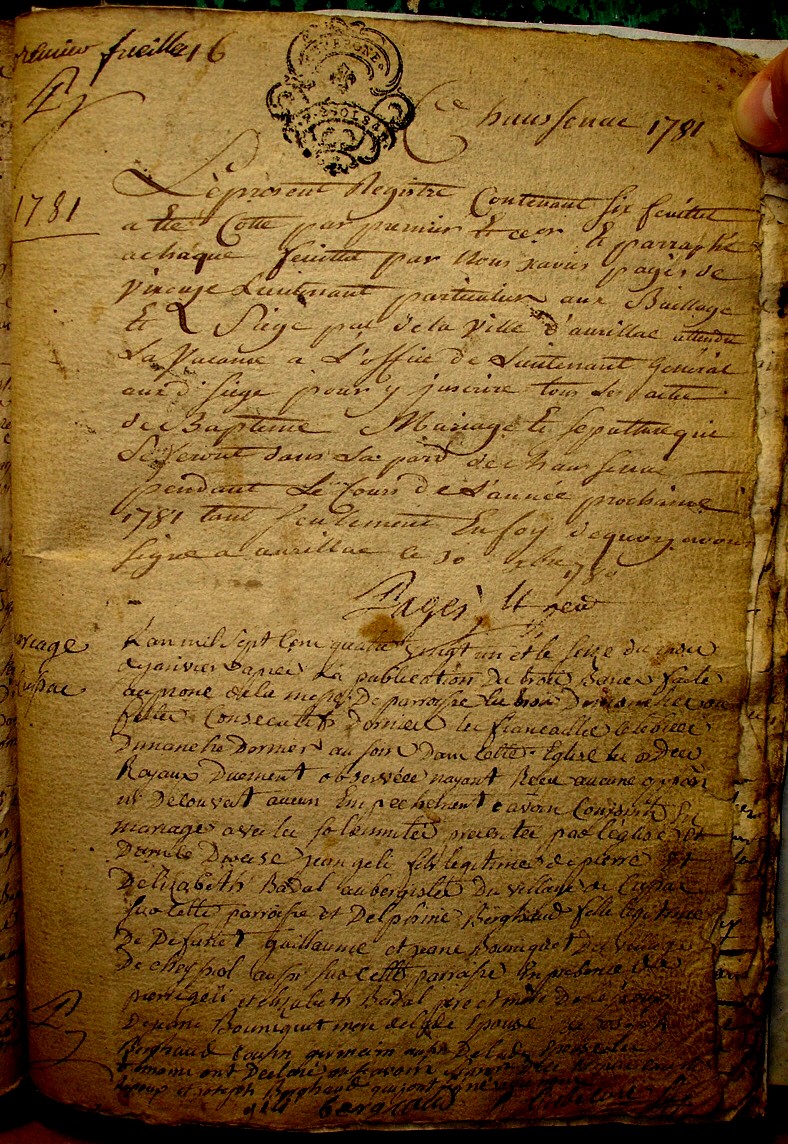 premier feuillet 6
Chaussenac 1781
1781
Le present Registre Contenant six feuillet
a Eté Cotté par premier Et der Et parraphé
a chaque feuillet par Nous xavier pagès de
vixouze Lieutenant particulier aux Bailliage
Et Siege de la ville d'aurillac attendu
La vacance a L'office de Lieutenant General
aud. siege pour y inscrire tous les actes
de Baptême Mariage Et sepulture qui
se feront dans la parr de chaussenac
pendant Le Cours de L'année prochaine
1781 tant seulement En foy dequoy avons
signé a aurillac le 30 1780
Pagès
mariage
L'an mil sept Cent quatre vingt un et le seize du mois
de janvier apres La publication de trois Bancs faite
au prone de la messe De parroisse les trois Dimanches ou
fettes Consecutifs dernier les fiancailles
Dimanche Dernier au soir Dans cette Eglise les ordces
Royaux Duement observées nayant Reçu aucune
ni Decouvert aucun Empechement avoir Conjoint En
mariage avec les solemnites par l'eglise
Diocese jean geli fils legitime de pierre Et
D'elizabeth Badal aubergiste Du village de Cussac
sur cette parroisse et Delphine Berghaud fille legitime
De Defunt guillaume et jeane Bouniquet Du village
De cheyssiol aussi sur cette parroisse En presence de
pierre geli et elizabeth Badal pere et mere
De jeane Bouniquet mere de lade Epouse de joseph
Berghaud Cousin germain Delade Epouse
ont Declaré ne scavoir
et joseph Berghaud qui ont signé
geli bergaud